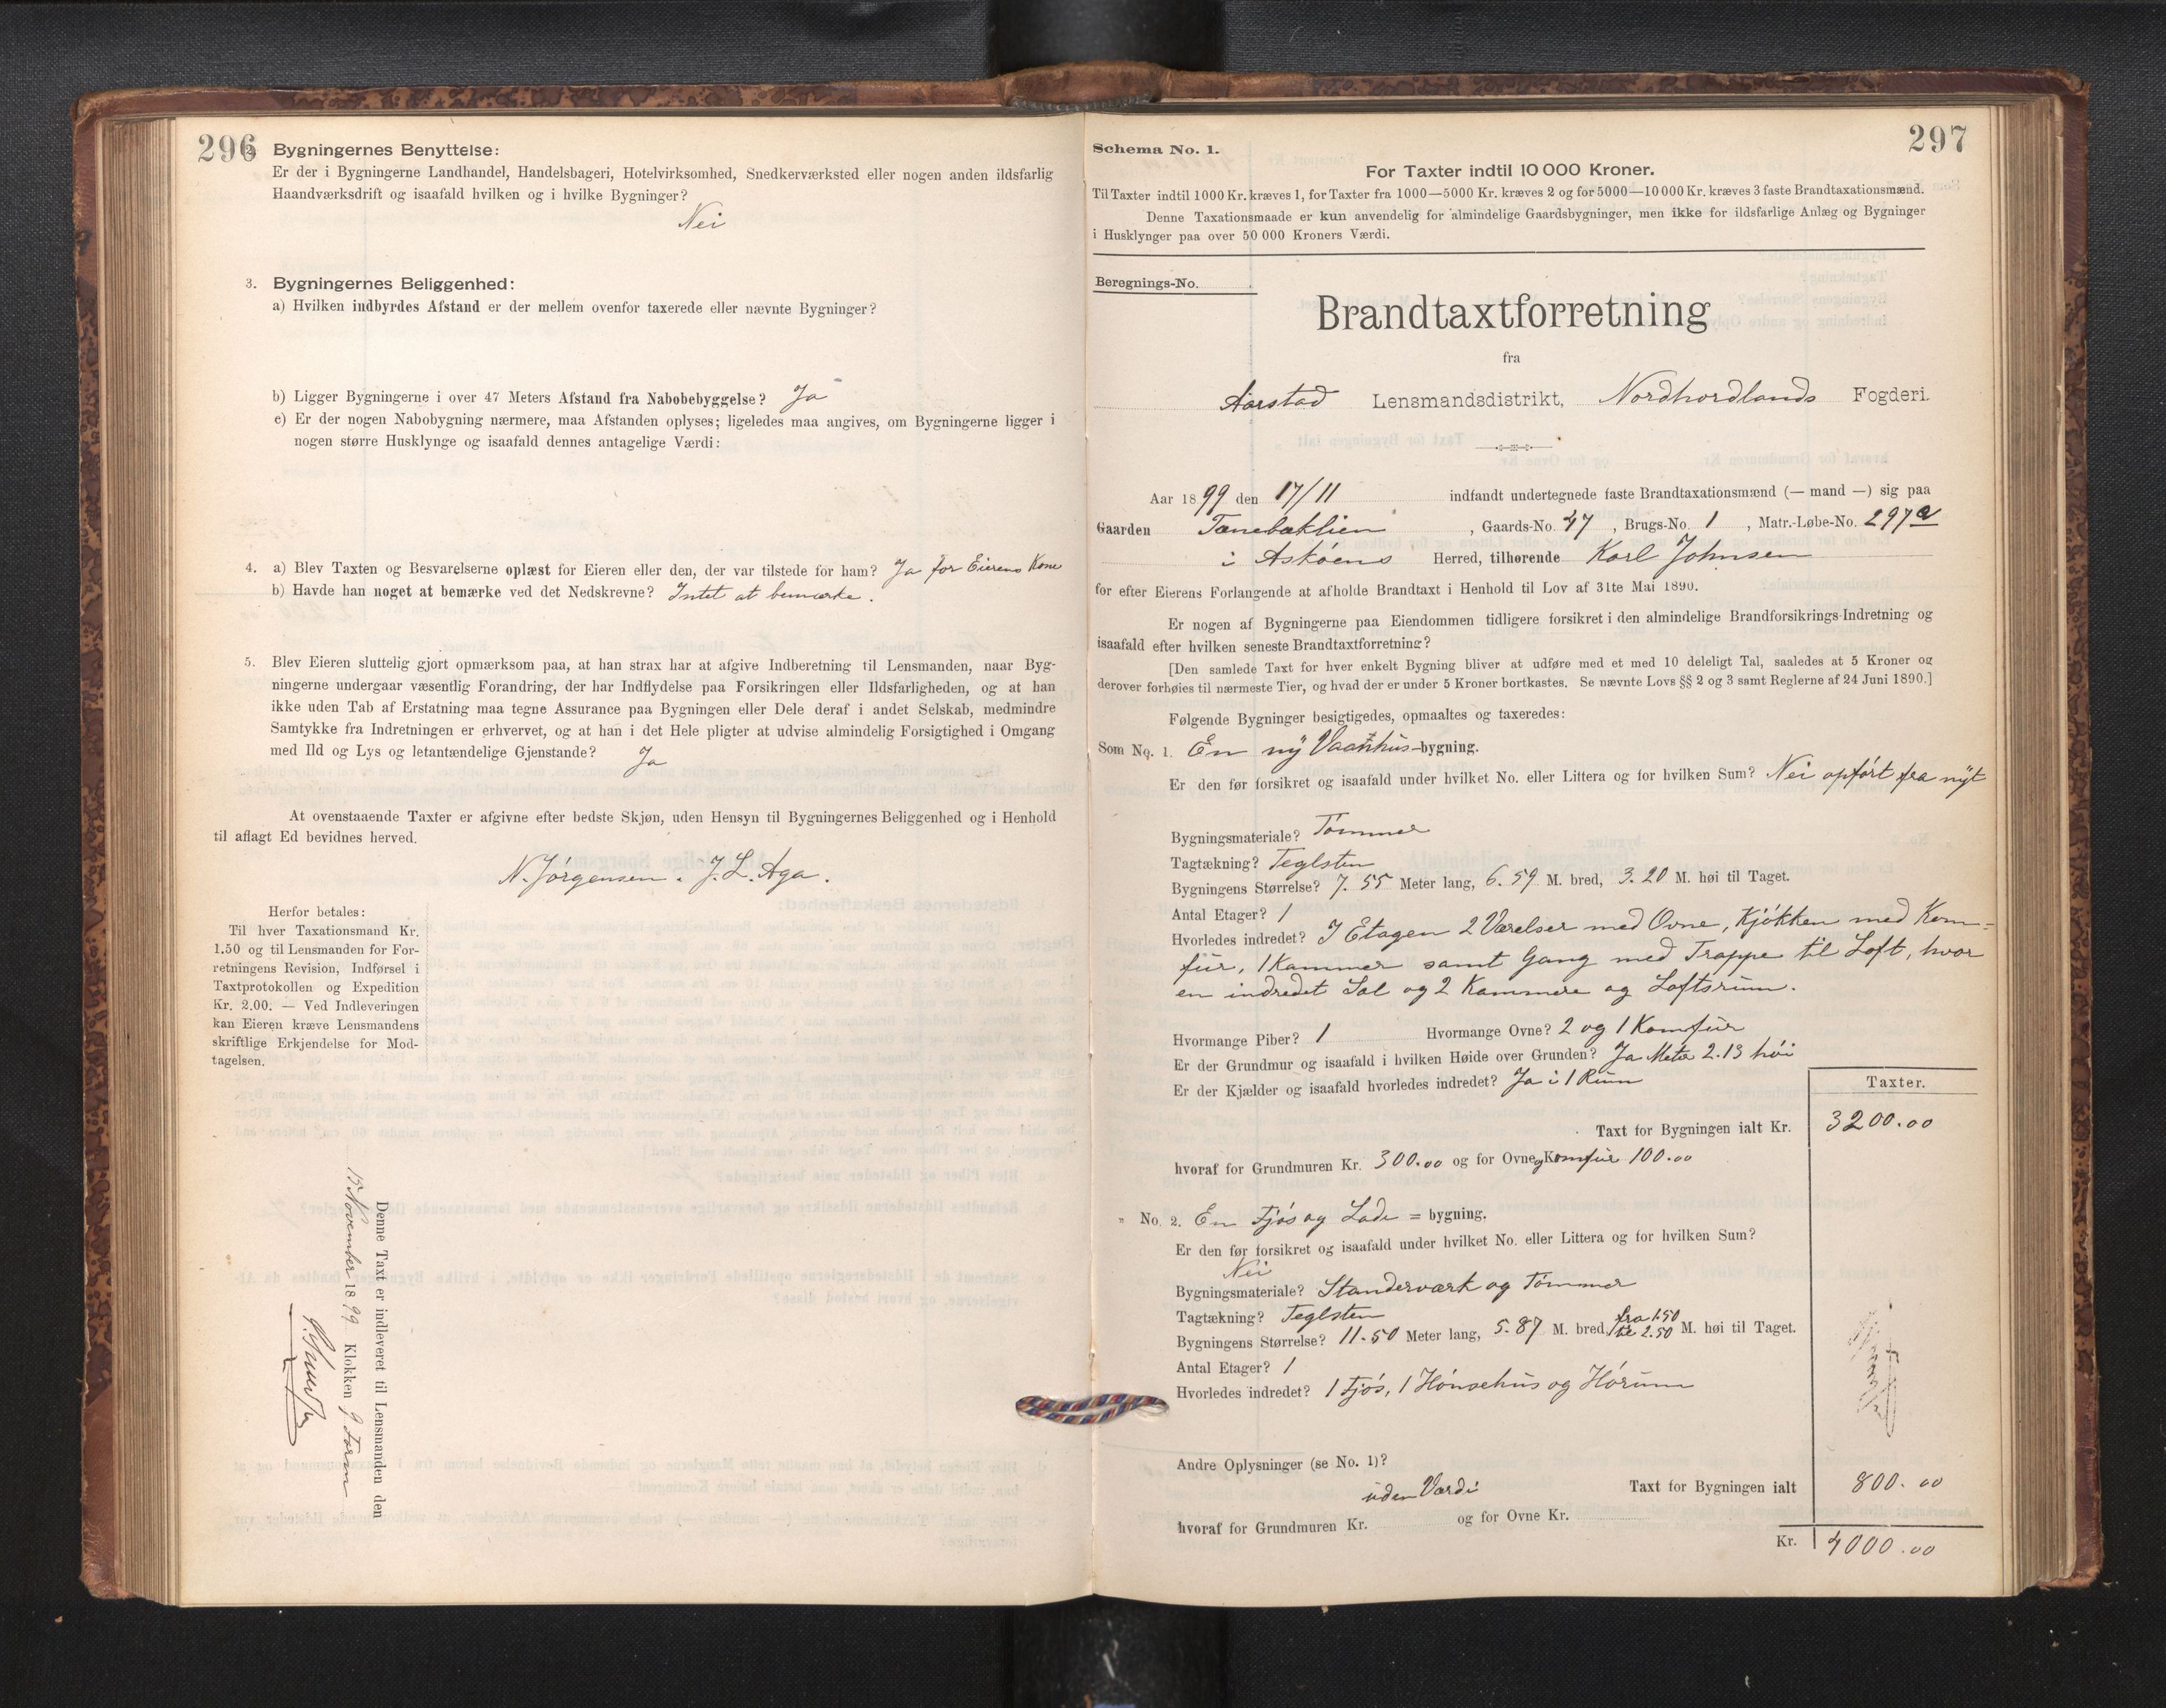 296
2. Bygningernes Benyttelse:
Er der i Bygningerne Landhandel, Handelsbageri, Hotelvirksomhed, Snedkerværksted eller nogen anden ildsfarlig
Haandværksdrift og isaafald hvilken og i hvilke Bygninger?
Nei
3. Bygningernes Beliggenhed:
a) Hvilken indbyrdes Afstand er der mellem ovenfor taxerede eller nævnte Bygninger?
b) Ligger Bygningerne i over 47 Meters Afstand fra Nabobebyggelse? Ja
c) Er der nogen Nabobygning nærmere, maa Afstanden oplyses; ligeledes maa angives, om Bygningerne ligger i
nogen større Husklynge og isaafald dennes antagelige Værdi:
4. a) Blev Taxten og Besvarelserne oplæst for Eieren eller den, der var tilstede for ham? Ja for Eierens Kone
b) Havde han noget at bemærke ved det Nedskrevne? Intet at bemærke.
5. Blev Eieren sluttelig gjort opmærksom paa, at han strax har at afgive Indberetning til Lensmanden, naar Byg-
ningerne undergaar væsentlig Forandring, der har Indflydelse paa Forsikringen eller Ildsfarligheden, og at han
ikke uden Tab af Erstatning maa tegne Assurance paa Bygningen eller Dele deraf i andet Selskab, medmindre
Samtykke fra Indretningen er erhvervet, og at han i det Hele pligter at udvise almindelig Forsigtighed i Omgang
med Ild og Lys og letantændelige Gjenstande? Ja
At ovenstaaende Taxter er afgivne efter bedste Skjøn, uden Hensyn til Bygningernes Beliggenhed og i Henhold
til aflagt Ed bevidnes herved.
N. Jørgensen. J. L. Aga.
Herfor betales:
Til hver Taxationsmand Kr.
1.50 og til Lensmanden for For-
retningens Revision, Indførsel i
Taxtprotokollen og Expedition
Kr. 2.00. — Ved Indleveringen
kan Eieren kræve Lensmandens
skriftlige Erkjendelse for Mod-
tagelsen.
Denne Taxt er indleveret til Lensmanden den
15 November 1899 Klokken 9 Form
297
Schema No. 1.
For Taxter indtil 10 000 Kroner.
Til Taxter indtil 1000 Kr. kræves 1, for Taxter fra 1000—5000 Kr. kræves 2 og for 5000—10 000 Kr. kræves 3 faste Brandtaxationsmænd.
Denne Taxationsmaade er kun anvendelig for almindelige Gaardsbygninger, men ikke for ildsfarlige Anlæg og Bygninger
i Husklynger paa over 50 000 Kroners Værdi.
Beregnings-No.
Brandtaxtforretning
fra
Aarstad Lensmandsdistrikt, Nordhordlands Fogderi.
Aar 1899 den 17/11 indfandt undertegnede faste Brandtaxationsmænd (— mand —) sig paa
Gaarden Tænebæklien, Gaards-No. 47, Brugs-No. 1, Matr.-Løbe-No. 297a
i Askøens Herred, tilhørende Karl Johnsen
for efter Eierens Forlangende at afholde Brandtaxt i Henhold til Lov af 31te Mai 1890.
Er nogen af Bygningerne paa Eiendommen tidligere forsikret i den almindelige Brandforsikrings-Indretning og
isaafald efter hvilken seneste Brandtaxtforretning?
[Den samlede Taxt for hver enkelt Bygning bliver at udføre med et med 10 deleligt Tal, saaledes at 5 Kroner og
derover forhøies til nærmeste Tier, og hvad der er under 5 Kroner bortkastes. Se nævnte Lovs §§ 2 og 3 samt Reglerne af 24 Juni 1890.]
Følgende Bygninger besigtigedes, opmaaltes og taxeredes:
Som No. 1. En ny Vaanhus-bygning.
Er den før forsikret og isaafald under hvilket No. eller Littera og for hvilken Sum? Nei opført fra nyt
Bygningsmateriale? Tømmer
Tagtækning? Teglsten
Bygningens Størrelse? 7.55 Meter lang, 6.59 M. bred, 3.20 M. høi til Taget.
Antal Etager? 1
Hvorledes indredet? I Etagen 2 Værelser med Ovne, Kjøkken med Kom=
für, 1 Kammer samt Gang med Trappe til Loft, hvor
en indredet Sal og 2 Kammere og Loftsrum.
Hvormange Piber? 1 Hvormange Ovne? 2 og 1 Komfür
Er der Grundmur og isaafald i hvilken Høide over Grunden? Ja Meter 2.13 høi
Er der Kjælder og isaafald hvorledes indredet? Ja i 1 Rum
Taxter.
Taxt for Bygningen ialt Kr. 3200.00
hvoraf for Grundmuren Kr. 300.00 og for Ovne og Komfür 100.00
" No. 2. En Fjøs og Lade = bygning.
Er den før forsikret og isaafald under hvilket No. eller Littera og for hvilken Sum?
Nei
Bygningsmateriale? Standerværk og Tømmer
Tagtækning? Teglsten
Bygningens Størrelse? 11.50 Meter lang, 5.87 M. bred, fra 1.50 til 2.50 M. høi til Taget.
Antal Etager? 1
Hvorledes indredet? 1 Fjøs, 1 Hønsehus og Hørum
Andre Oplysninger (se No. 1)?
uden Værdi Taxt for Bygningen ialt 800.00
hvoraf for Grundmuren Kr. og for Ovne Kr.
Kr. 4000.00